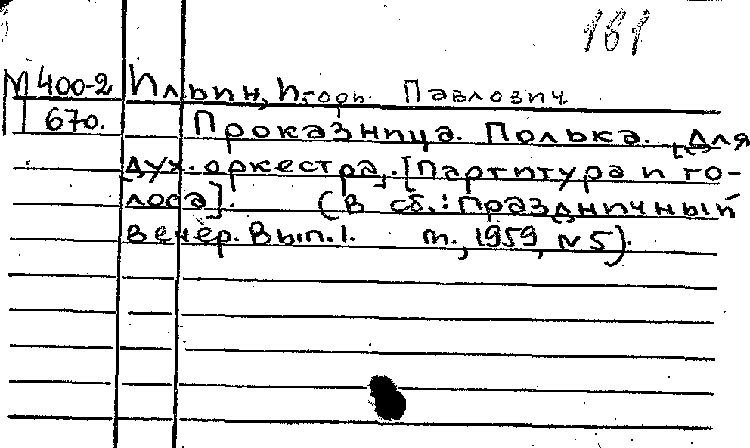 161
М 400-2 Ильин, Игорь Павлович
670. Проказница. Полька. [Для
дух. оркестра]. [Партитура и го-
лоса]. (В сб.: Праздничный
вечер. Вып. 1. М., 1959, №5).